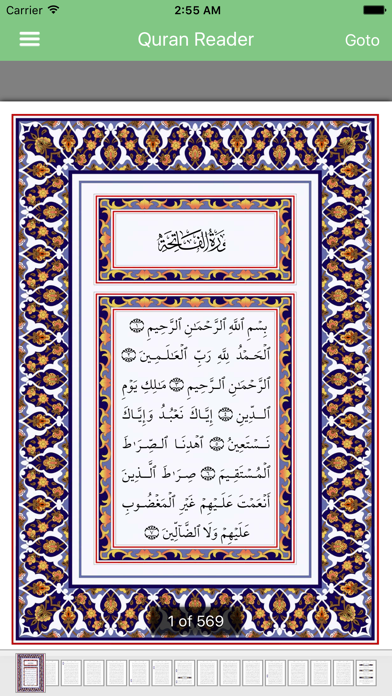 Carrier 2:55 AM
Quran Reader Goto
سورة الفاتحة
بِسْمِ ٱللَّهِ ٱلرَّحْمَٰنِ ٱلرَّحِيمِ ۝١
ٱلْحَمْدُ لِلَّهِ رَبِّ ٱلْعَٰلَمِينَ ۝٢
ٱلرَّحْمَٰنِ ٱلرَّحِيمِ ۝٣ مَٰلِكِ يَوْمِ
ٱلدِّينِ ۝٤ إِيَّاكَ نَعْبُدُ وَإِيَّاكَ
نَسْتَعِينُ ۝٥ ٱهْدِنَا ٱلصِّرَٰطَ
ٱلْمُسْتَقِيمَ ۝٦ صِرَٰطَ ٱلَّذِينَ
أَنْعَمْتَ عَلَيْهِمْ غَيْرِ ٱلْمَغْضُوبِ
عَلَيْهِمْ وَلَا ٱلضَّآلِّينَ ۝٧
1 of 569